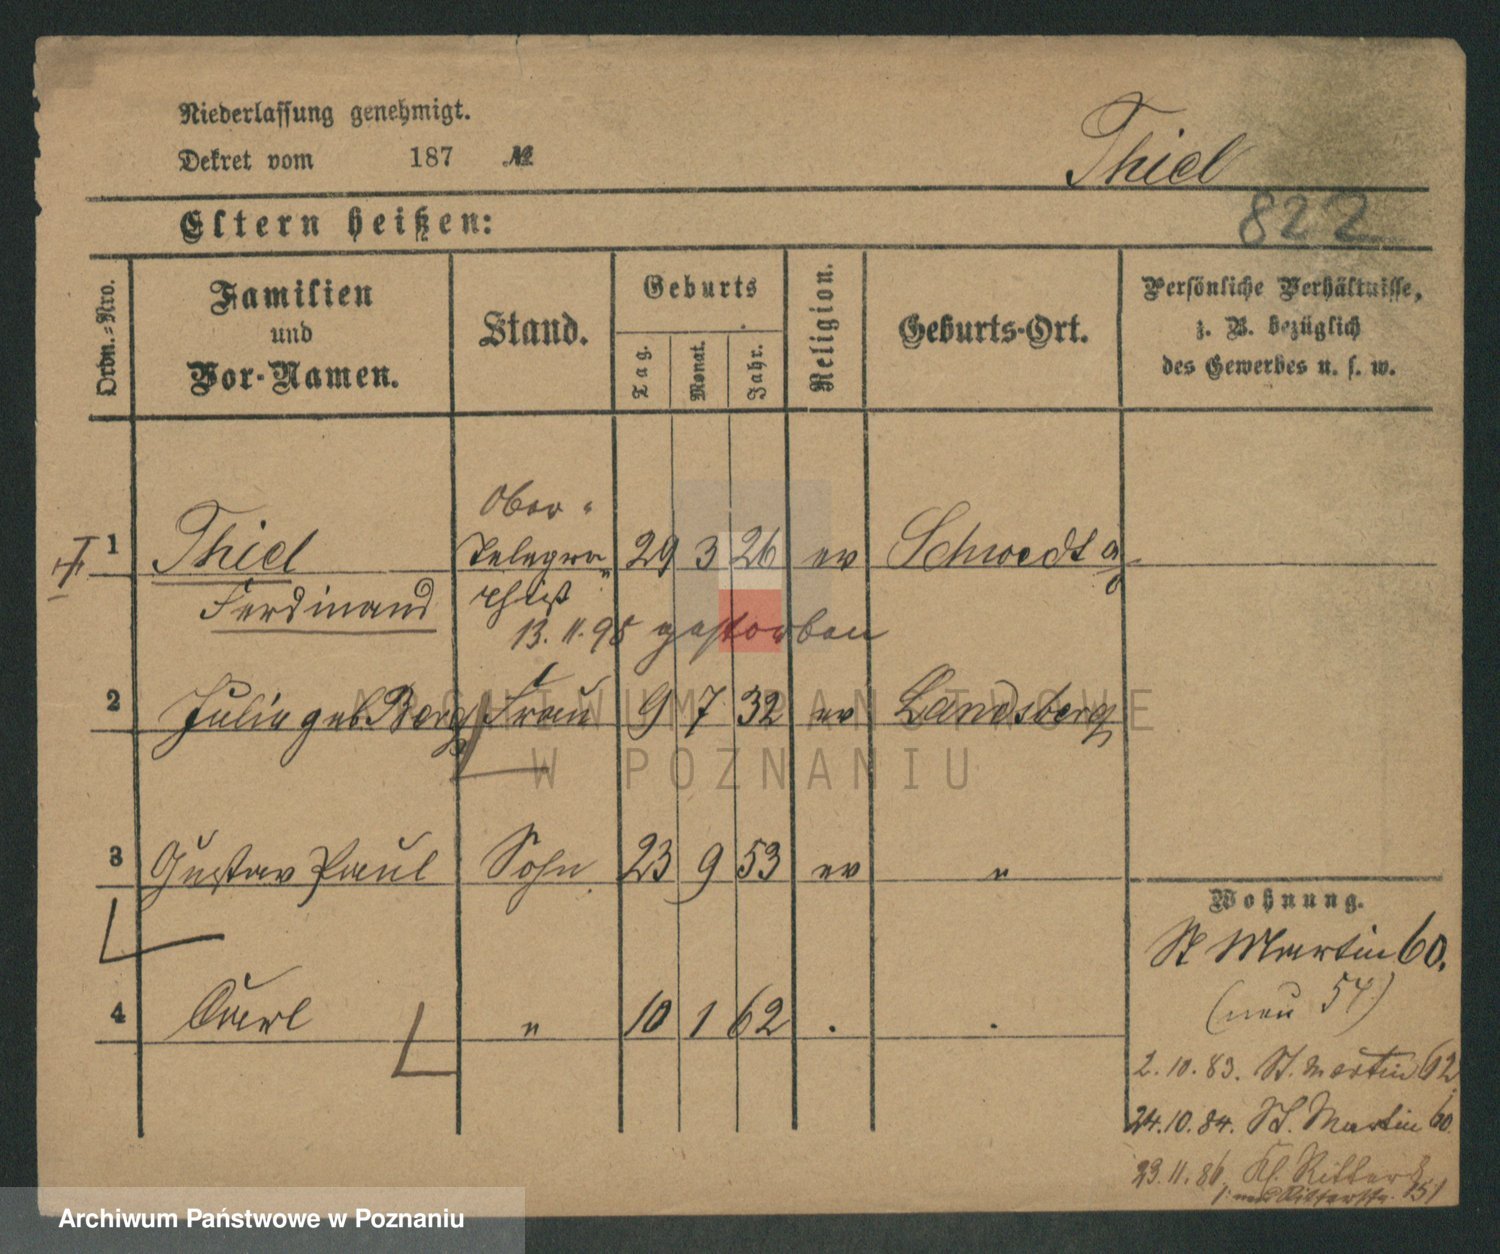 Niederlassung genehmigt.
Dekret vom 187 №
Thiel
822
Eltern heißen:
Ordn.-Nro.
Familien
und
Vor-Namen.
Stand.
Geburts
Tag.
Monat.
Jahr.
Religion.
Geburts-Ort.
Persönliche Verhältnisse,
z. B. bezüglich
des Gewerbes u. s. w.
Ober-
1 Thiel Telegra- 29 3 26 ev Schwedt a/O
Ferdinand phist
13.11.95 gestorben
2 Julie geb. Berg Frau 9 7 32 ev Landsberg
3 Gustav Paul Sohn 23 9 53 ev "
4 Carl " 10 1 62 . .
Wohnung.
St Martin 60.
(neu 54)
2.10.83. St. Martin 62
24.10.84. St. Martin 60.
23.11.86. Kl. Ritter
ARCHIWUM PAŃSTWOWE
W POZNANIU
Archiwum Państwowe w Poznaniu